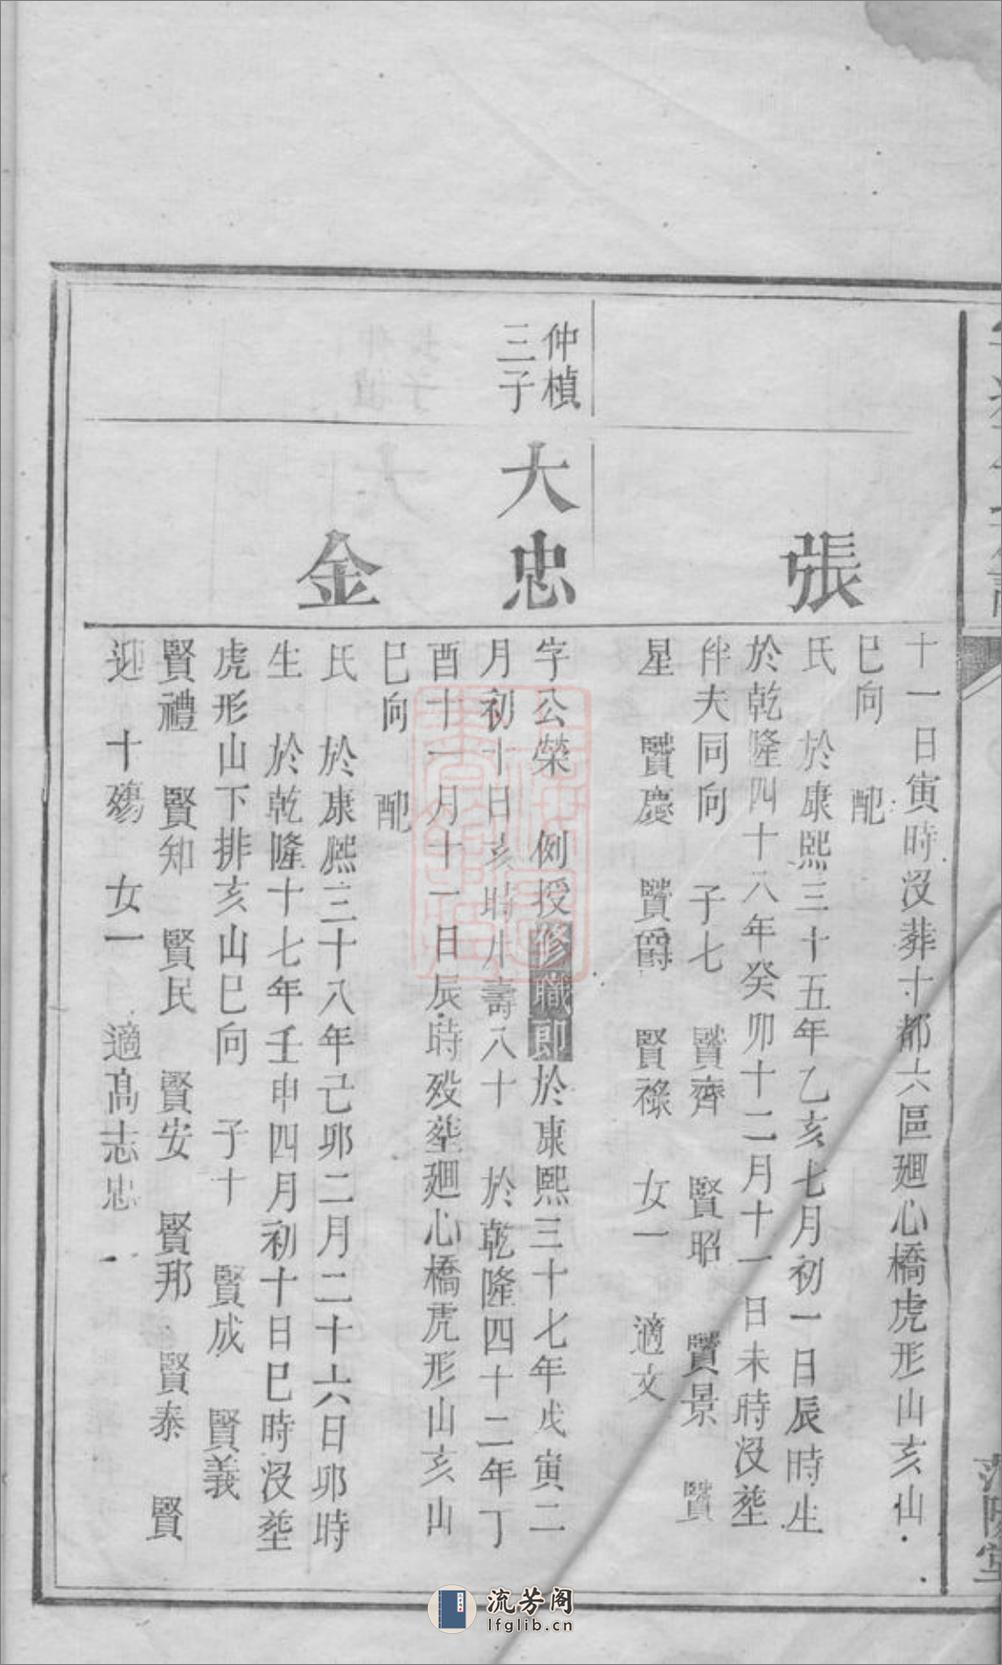 十一日寅時沒葬十都六區廻心橋虎形山亥山
巳向　配
張
氏　於康熙三十五年乙亥七月初一日辰時生
於乾隆四十八年癸卯十二月十一日未時沒塟
伴夫同向　子七　賢齊　賢昭　賢景　賢
星　賢慶　賢爵　賢祿　女一　適文
仲楨
三子
大忠
字公榮　例授修職郎於康熙三十七年戊寅二
月初十日亥時生壽八十　於乾隆四十二年丁
酉十一月十一日辰時歿塟廻心橋虎形山亥山
巳向　配
金
氏　於康熙三十八年己卯二月二十六日卯時
生　於乾隆十七年壬申四月初十日巳時沒塟
虎形山下排亥山巳向　子十　賢成　賢義
賢禮　賢知　賢民　賢安　賢邦　賢泰　賢
迎　十殤　女一　適髙志忠
流芳阁
lfglib.cn